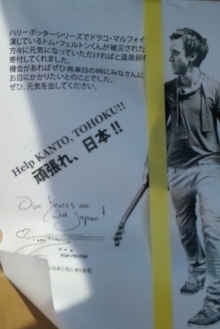 ハリーポッターシリーズでドラコ・マルフォイ
演じているトム・フェルトンくんが被災された
方々に元気になっていただければと温泉
寄付してくれました。
機会があればぜひ再来日の時にみなさんに
お目にかかりたいとのことでした。
ぜひ、元気を出してください。
Help KANTO, TOHOKU!!
頑張れ、日本!!
Our hearts are
Out Japan!